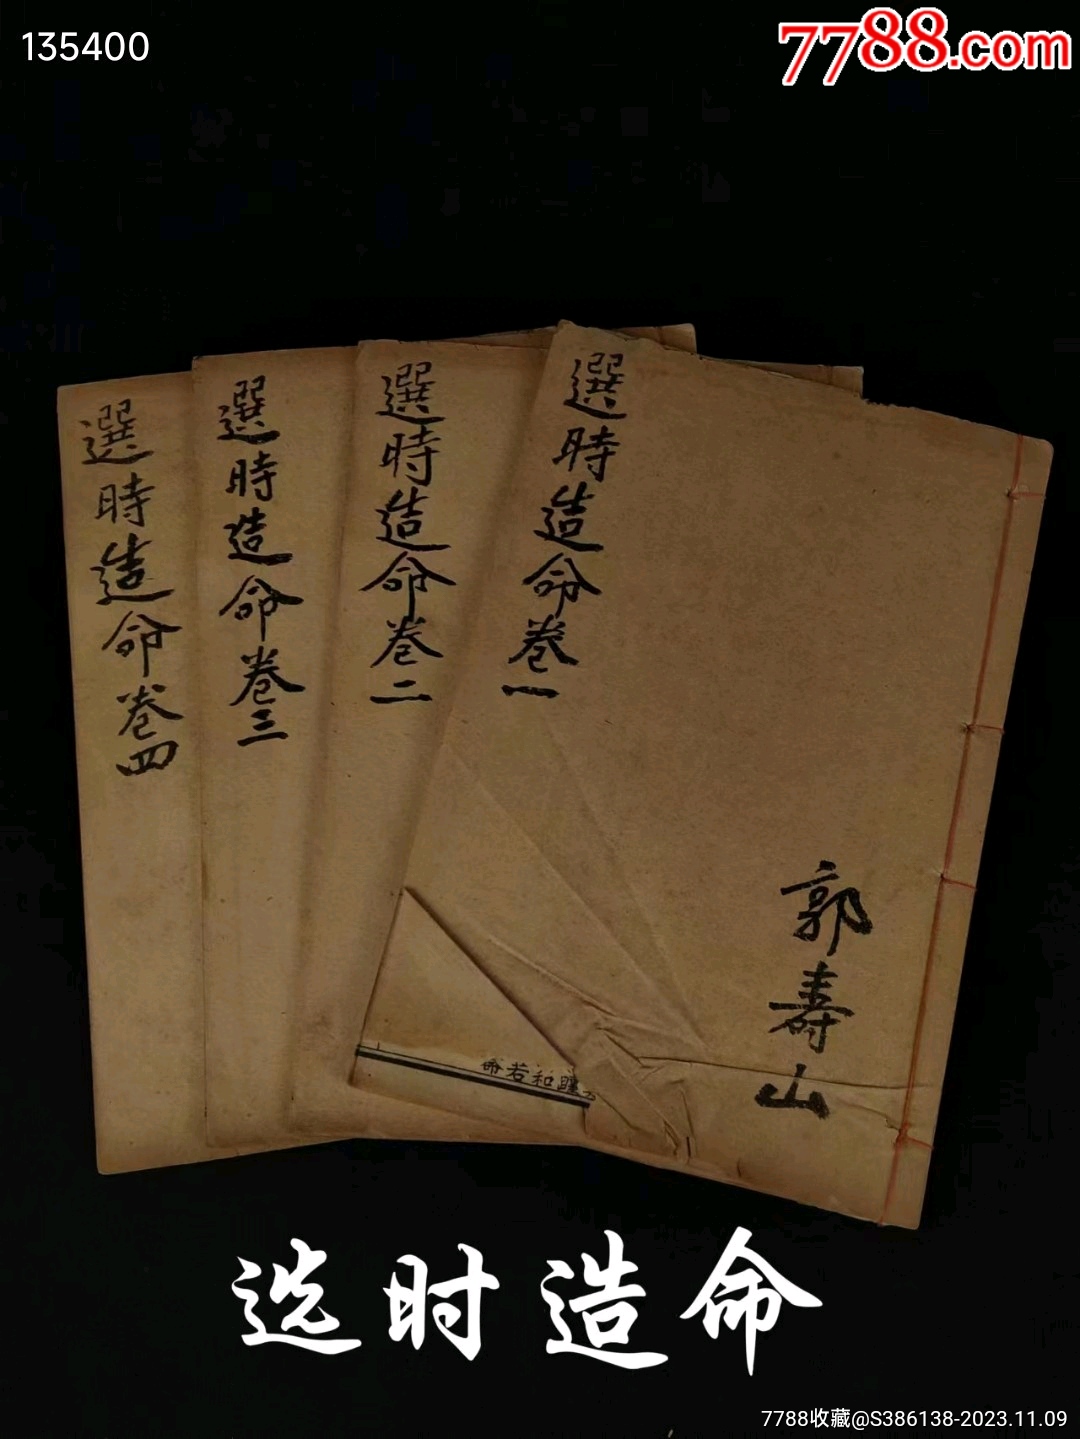 135400
7788.com
選時造命卷一
選時造命卷二
選時造命卷三
選時造命卷四
郭壽山
和若命
选时造命
7788收藏@S386138-2023.11.09